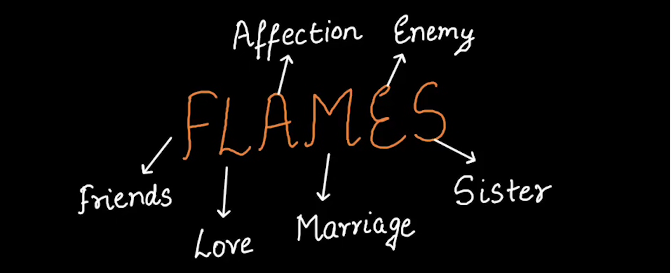 Affection Enemy
FLAMES
Friends
Love
Marriage
Sister